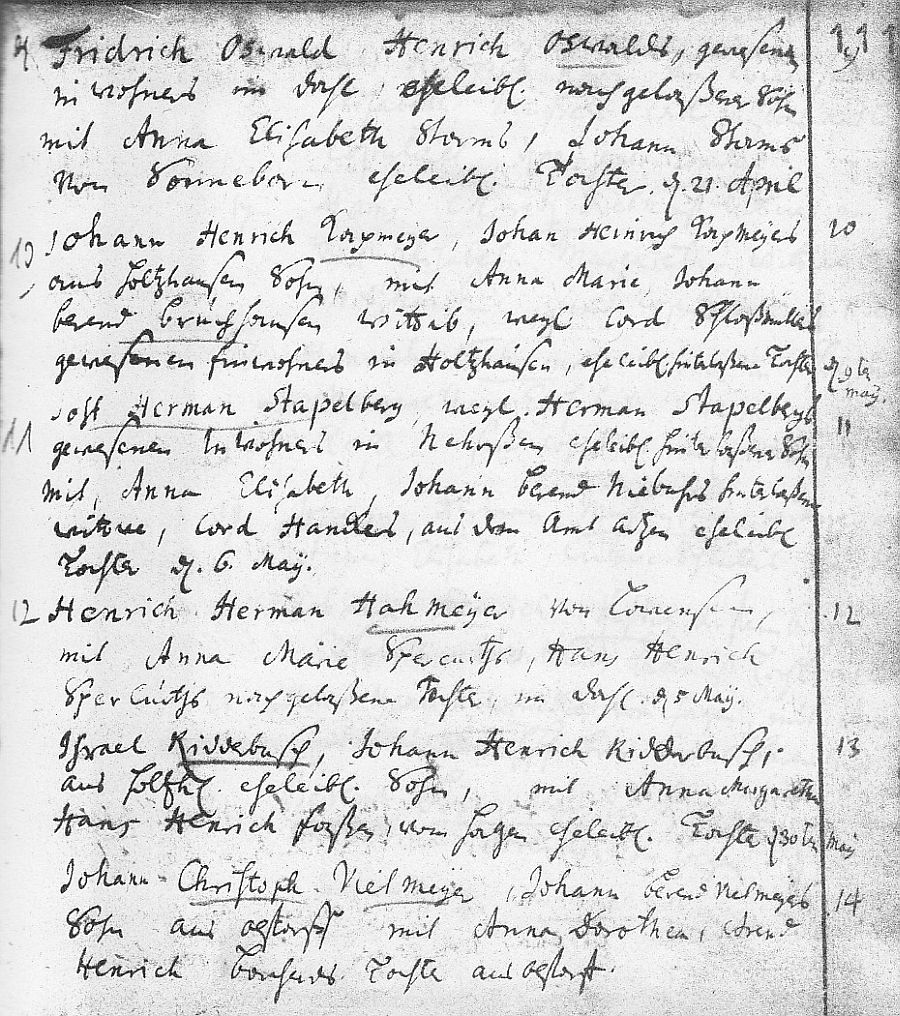 9 Fridrich Oswald Henrich Oswalds, gewesenen 9
inwohners im dohl eheleibl. nachgelaßener Sohn
mit Anna Elisabeth Storms, Johann Storms
von Sonneborn eheleibl. Tochter. d. 21. April
10 Johann Henrich, Johan Heinrich 10
aus Holtzhausen Sohn, mit Anna Marie, Johann
berend bruchhausen Wittib, weyl Cord
gewesenen Einwohners in Holtzhausen, eheleibl. hinterlaßene Tochter d 9te may.
11 Jost Herman Stapelberg, weyl. Herman Stapelbergs 11
gewesenen Inwohners in eheleibl. hinterlaßener Sohn
mit, Anna Elisabeth, Johann berend Niebuhrs hinterlaßene
witwe, Cord Handes, aus dem Amt eheleibl
Tochter d. 6. May.
12 Henrich Herman Hahmeyer von, 12
mit Anna Marie, Hans Henrich
nachgelaßene Tochter, im dohl. d 5 May.
Israel Ridderbusch, Johann Henrich Ridderbusch, 13
aus Holtzh. eheleibl. Sohn, mit Anna Margarethe
Hans Henrich, vom Hagen eheleibl. Tochter d 30ten May
Johann Christoph Vielmeyer, Johann berend Vielmeyers 14
Sohn aus oestorff mit Anna Dorothea, Arend
Henrich Tochter aus oestorff.